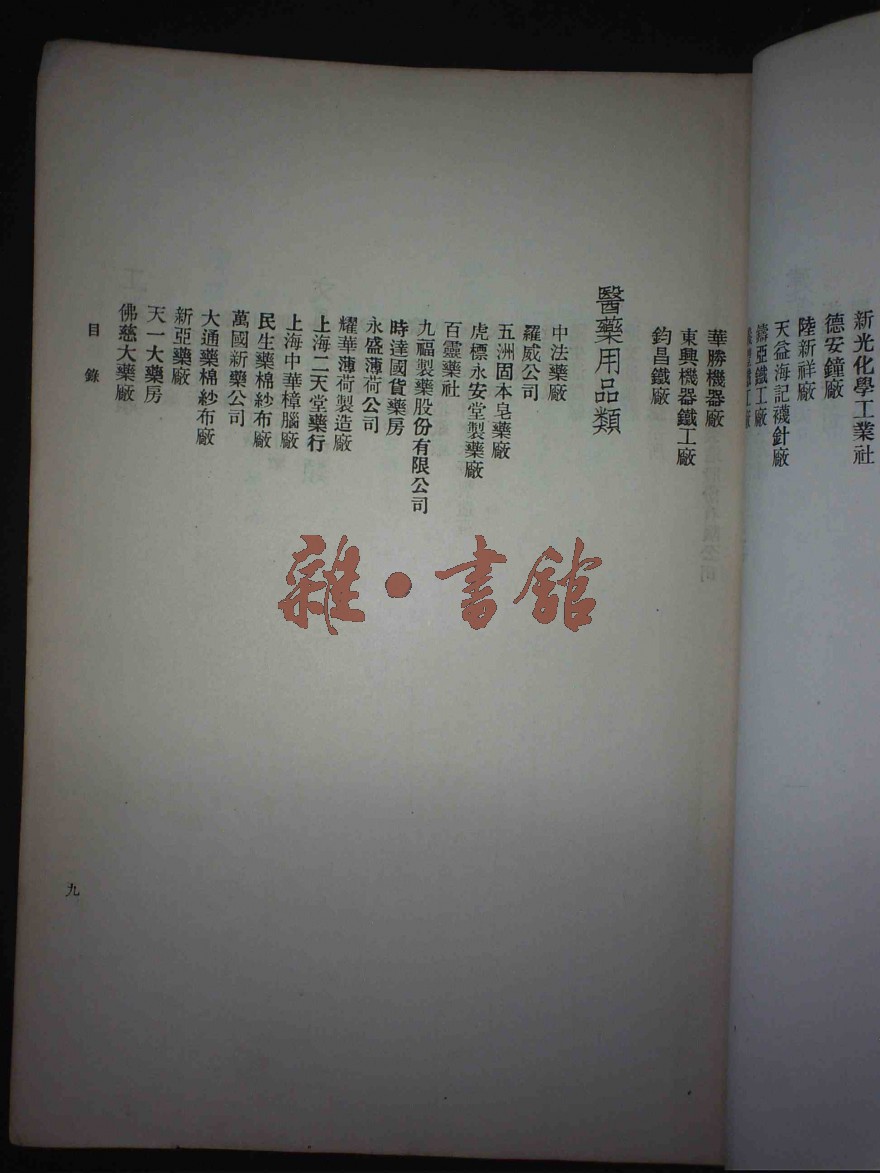 新光化學工業社
德安鐘廠
陸新祥廠
天益海記襪針廠
鑄亞鐵工廠
鐵工廠
華勝機器廠
東興機器鐵工廠
鈞昌鐵廠
醫藥用品類
中法藥廠
羅威公司
五洲固本皂藥廠
虎標永安堂製藥廠
百靈藥社
九福製藥股份有限公司
時達國貨藥房
永盛薄荷公司
耀華薄荷製造廠
上海二天堂藥行
上海中華樟腦廠
民生藥棉紗布廠
萬國新藥公司
大通藥棉紗布廠
新亞藥廠
天一大藥房
佛慈大藥廠
目錄
九
雜·書館